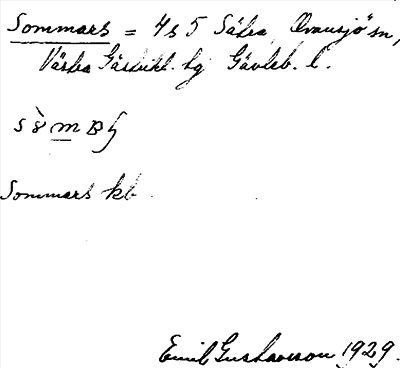 Sommars = 4 s 5 Säbra, Ovansjö sn,
Västra Gästrikl. hg Gävleb. l.
Sommars kb
Emil Gustavsson 1929.